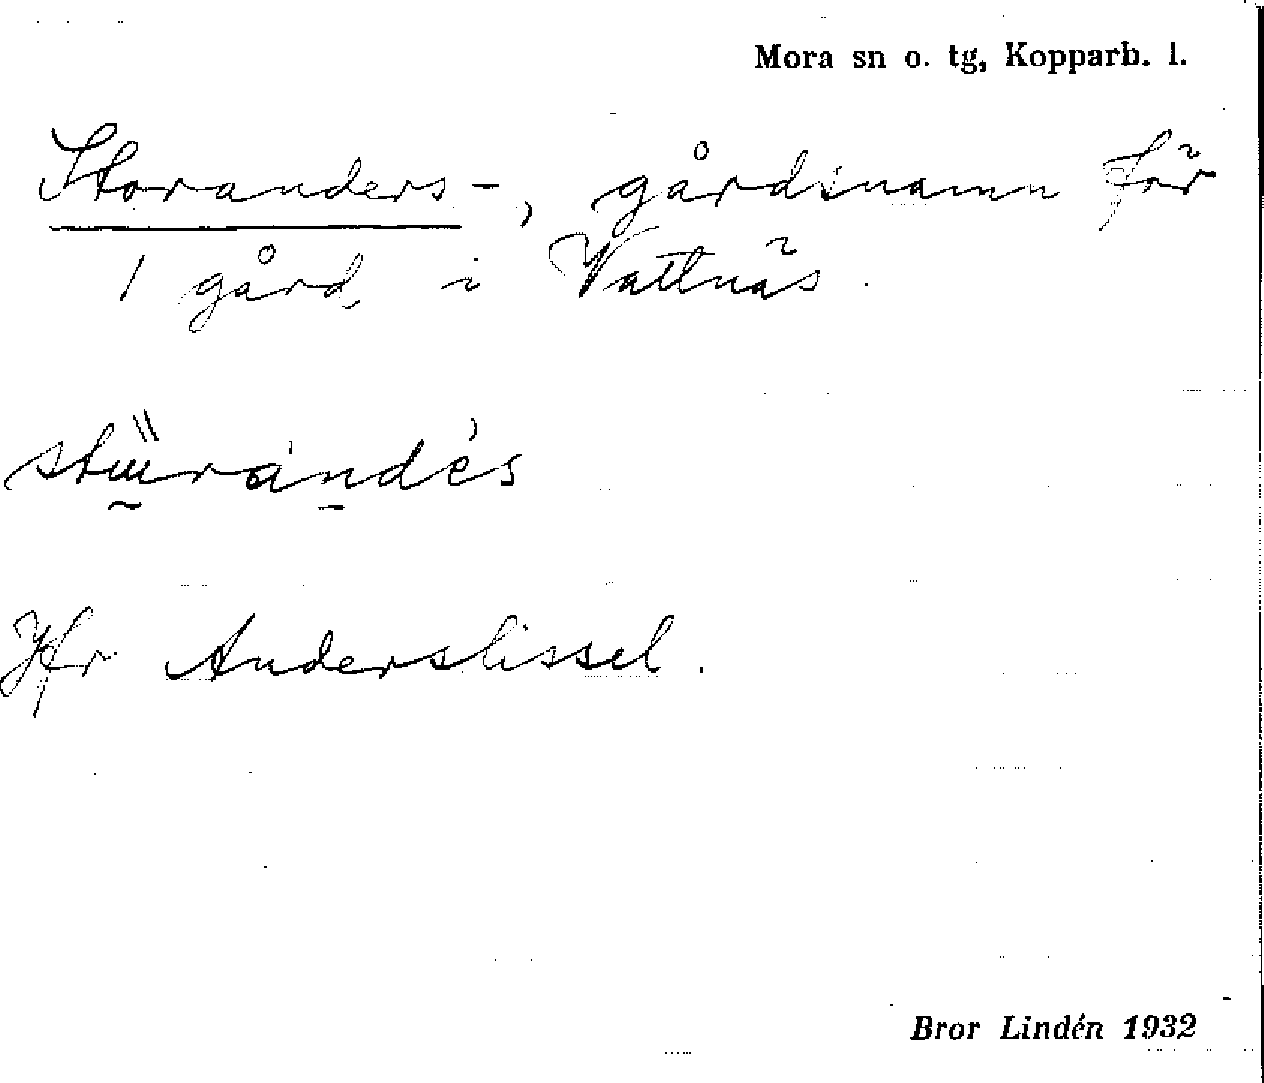 Mora sn o. tg, Kopparb. l.
Storanders-, gårdsnamn för
1 gård i Vattnäs.
Jfr Anderslissel.
Bror Lindén 1932